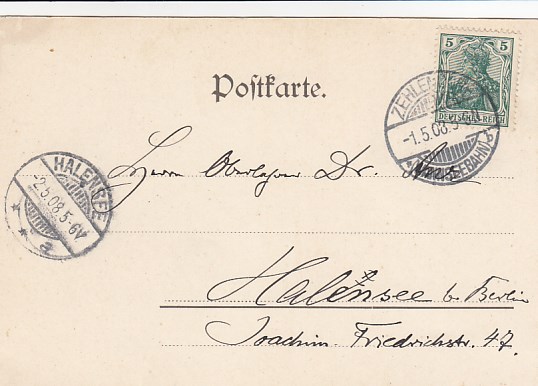 5 5
DEUTSCHES REICH
Postkarte.
ZEHLEN
-1.5.08.5-6
SEEBAHN
HALENSEE
-2.5.08.5-6V
* * a
Herrn Oberlehrer Dr.
Halensee b. Berlin
Joachim Friedrichstr. 47.